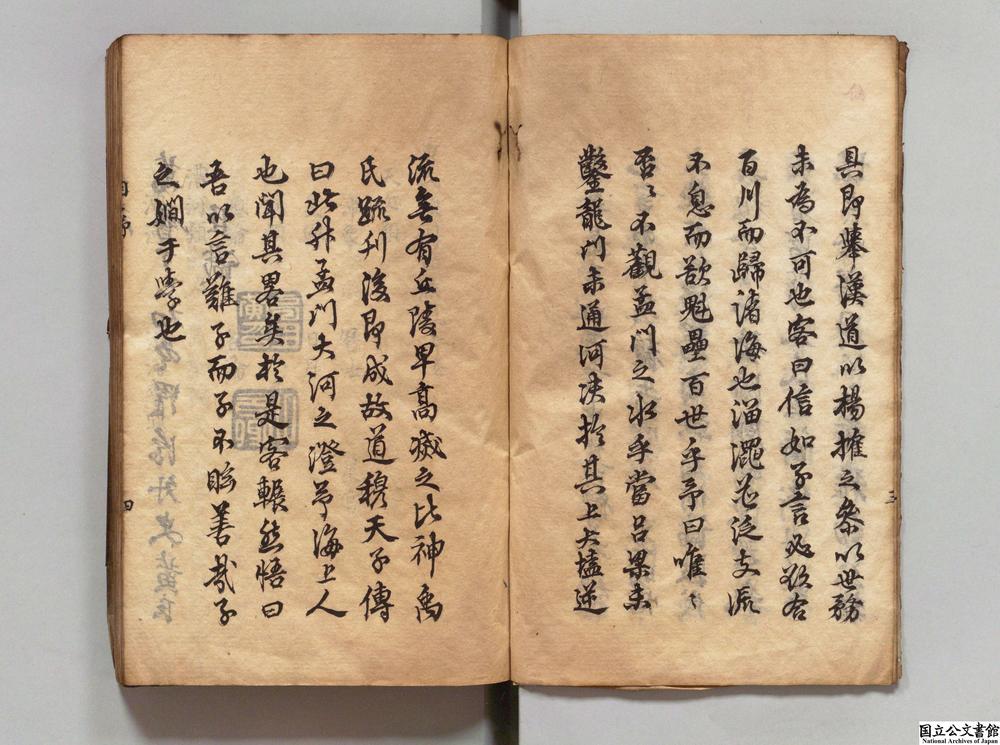 具即舉漢道以楊搉之叅以世務
未為不可也客曰信如子言必欲合
百川而歸諸海也淄澠並泛支派
不息而欲魁壘百世乎予曰唯〻
否〻不觀孟門之水乎當呂梁未
鑿龍門未通河決於其上大溢逆
流無有丘陵早高滅之比神禹
氏疏刊浚即成故道穆天子傳
曰北升孟門大河之澄予海上人
也聞其畧矣於是客囅然悟曰
吾以言難子而子不眩善哉子
之嫺于學也
国立公文書館
National Archives of Japan